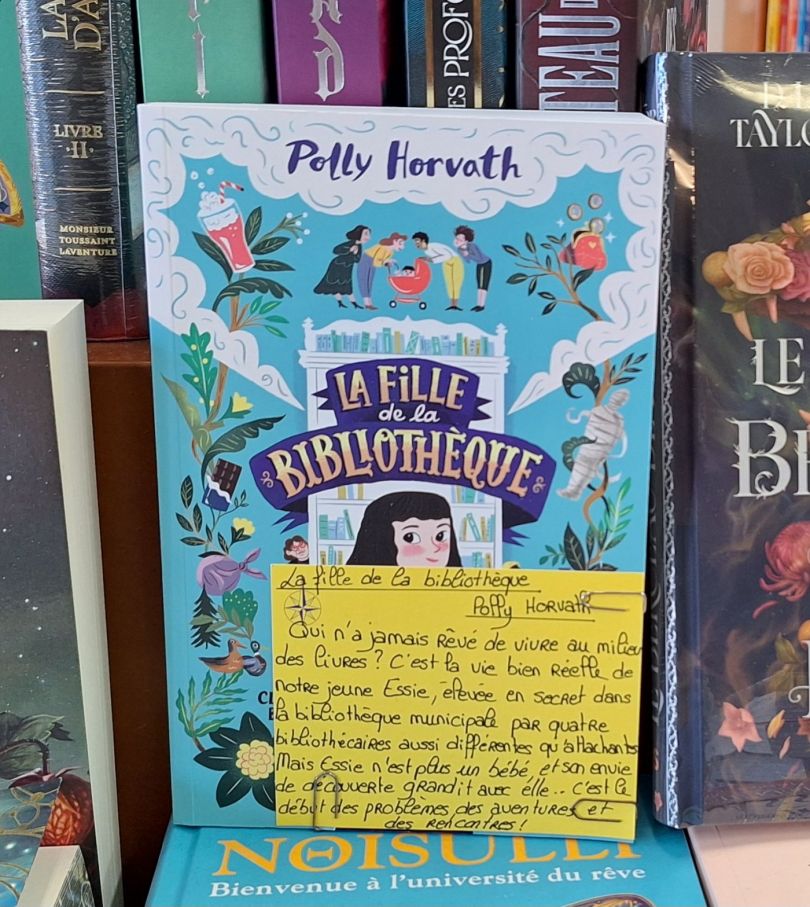 LIVRE
·II·
MONSIEUR
TOUSSAINT
LAVENTURE
Polly Horvath
LA FILLE
de la
BIBLIOTHÈQUE
La fille de la bibliothèque
Polly HORVATH
Qui n'a jamais Rêvé de vivre au milieu
des livres ? C'est la vie bien Réelle de
notre jeune Essie, élevée en secret dans
la bibliothèque municipale par quatre
bibliothécaires aussi différentes qu'attachantes
Mais Essie n'est plus un bébé, et son envie
de découverte grandit avec elle.. C'est le
début des problèmes, des aventures et
des rencontres !
NOISULLI
Bienvenue à l'université du rêve
LE